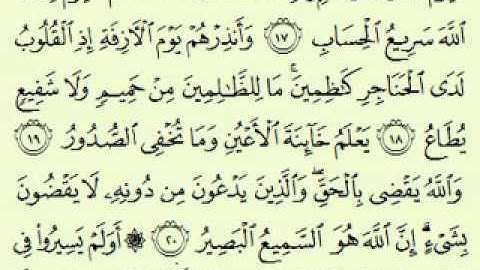 ٱللَّهَ سَرِيعُ ٱلْحِسَابِ ١٧ وَأَنذِرْهُمْ يَوْمَ ٱلْءَازِفَةِ إِذِ ٱلْقُلُوبُ
لَدَى ٱلْحَنَاجِرِ كَٰظِمِينَ ۚ مَا لِلظَّٰلِمِينَ مِنْ حَمِيمٍ وَلَا شَفِيعٍ
يُطَاعُ ١٨ يَعْلَمُ خَآئِنَةَ ٱلْأَعْيُنِ وَمَا تُخْفِى ٱلصُّدُورُ ١٩
وَٱللَّهُ يَقْضِى بِٱلْحَقِّ ۖ وَٱلَّذِينَ يَدْعُونَ مِن دُونِهِۦ لَا يَقْضُونَ
بِشَىْءٍ ۗ إِنَّ ٱللَّهَ هُوَ ٱلسَّمِيعُ ٱلْبَصِيرُ ٢٠ ۞ أَوَلَمْ يَسِيرُوا۟ فِى